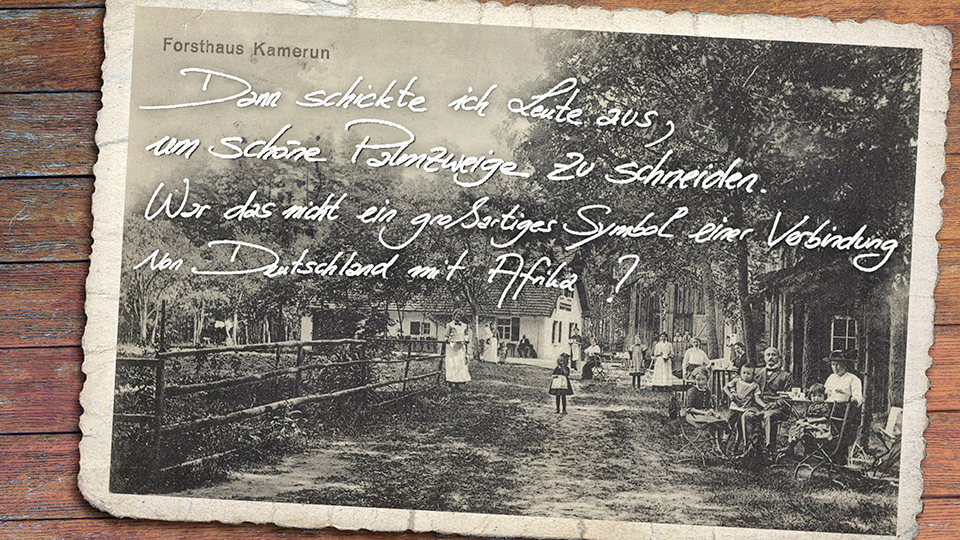 Forsthaus Kamerun
Dann schickte ich Leute aus,
um schöne Palmzweige zu schneiden.
War das nicht ein großartiges Symbol einer Verbindung
von Deutschland mit Afrika?